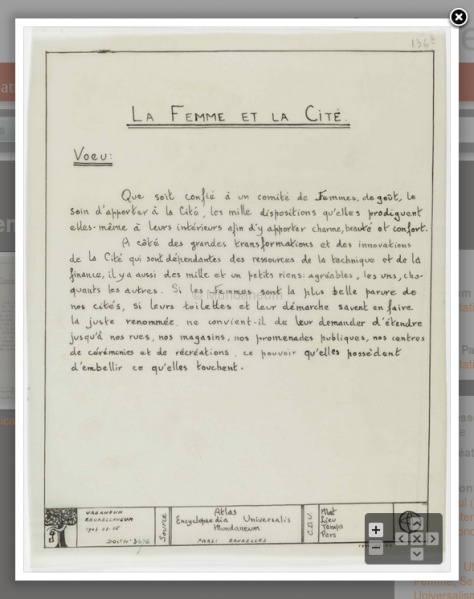 136
LA FEMME ET LA CITÉ.
Voeu:
Que soit confié à un comité de Femmes, de goût, le
soin d'apporter à la Cité, les mille dispositions qu'elles prodiguent
elles-même à leurs intérieurs afin d'y apporter charme, beauté et confort.
A côté des grandes transformations et des innovations
de la Cité qui sont dépendantes des ressources de la technique et de la
finance, il y a aussi des mille et un petits riens: agréables, les uns, cho-
quants les autres. Si les Femmes sont la plus belle parure de
nos cités, si leurs toilettes et leur démarche savent en faire
la juste renommée, ne convient-il de leur demander d'étendre
jusqu'à nos rues, nos magasins, nos promenades publiques, nos centres
de cérémonies et de récréations, ce pouvoir qu'elles possèdent
d'embellir ce qu'elles touchent.
Mundaneum
URBANEUM
BRUXELLANEUM
DOCT N°
SOURCE
Atlas
Encyclopaedia Universalis
Mundaneum
PARIS BRUXELLES
C.D.U.
Mat
Lieu
Temps